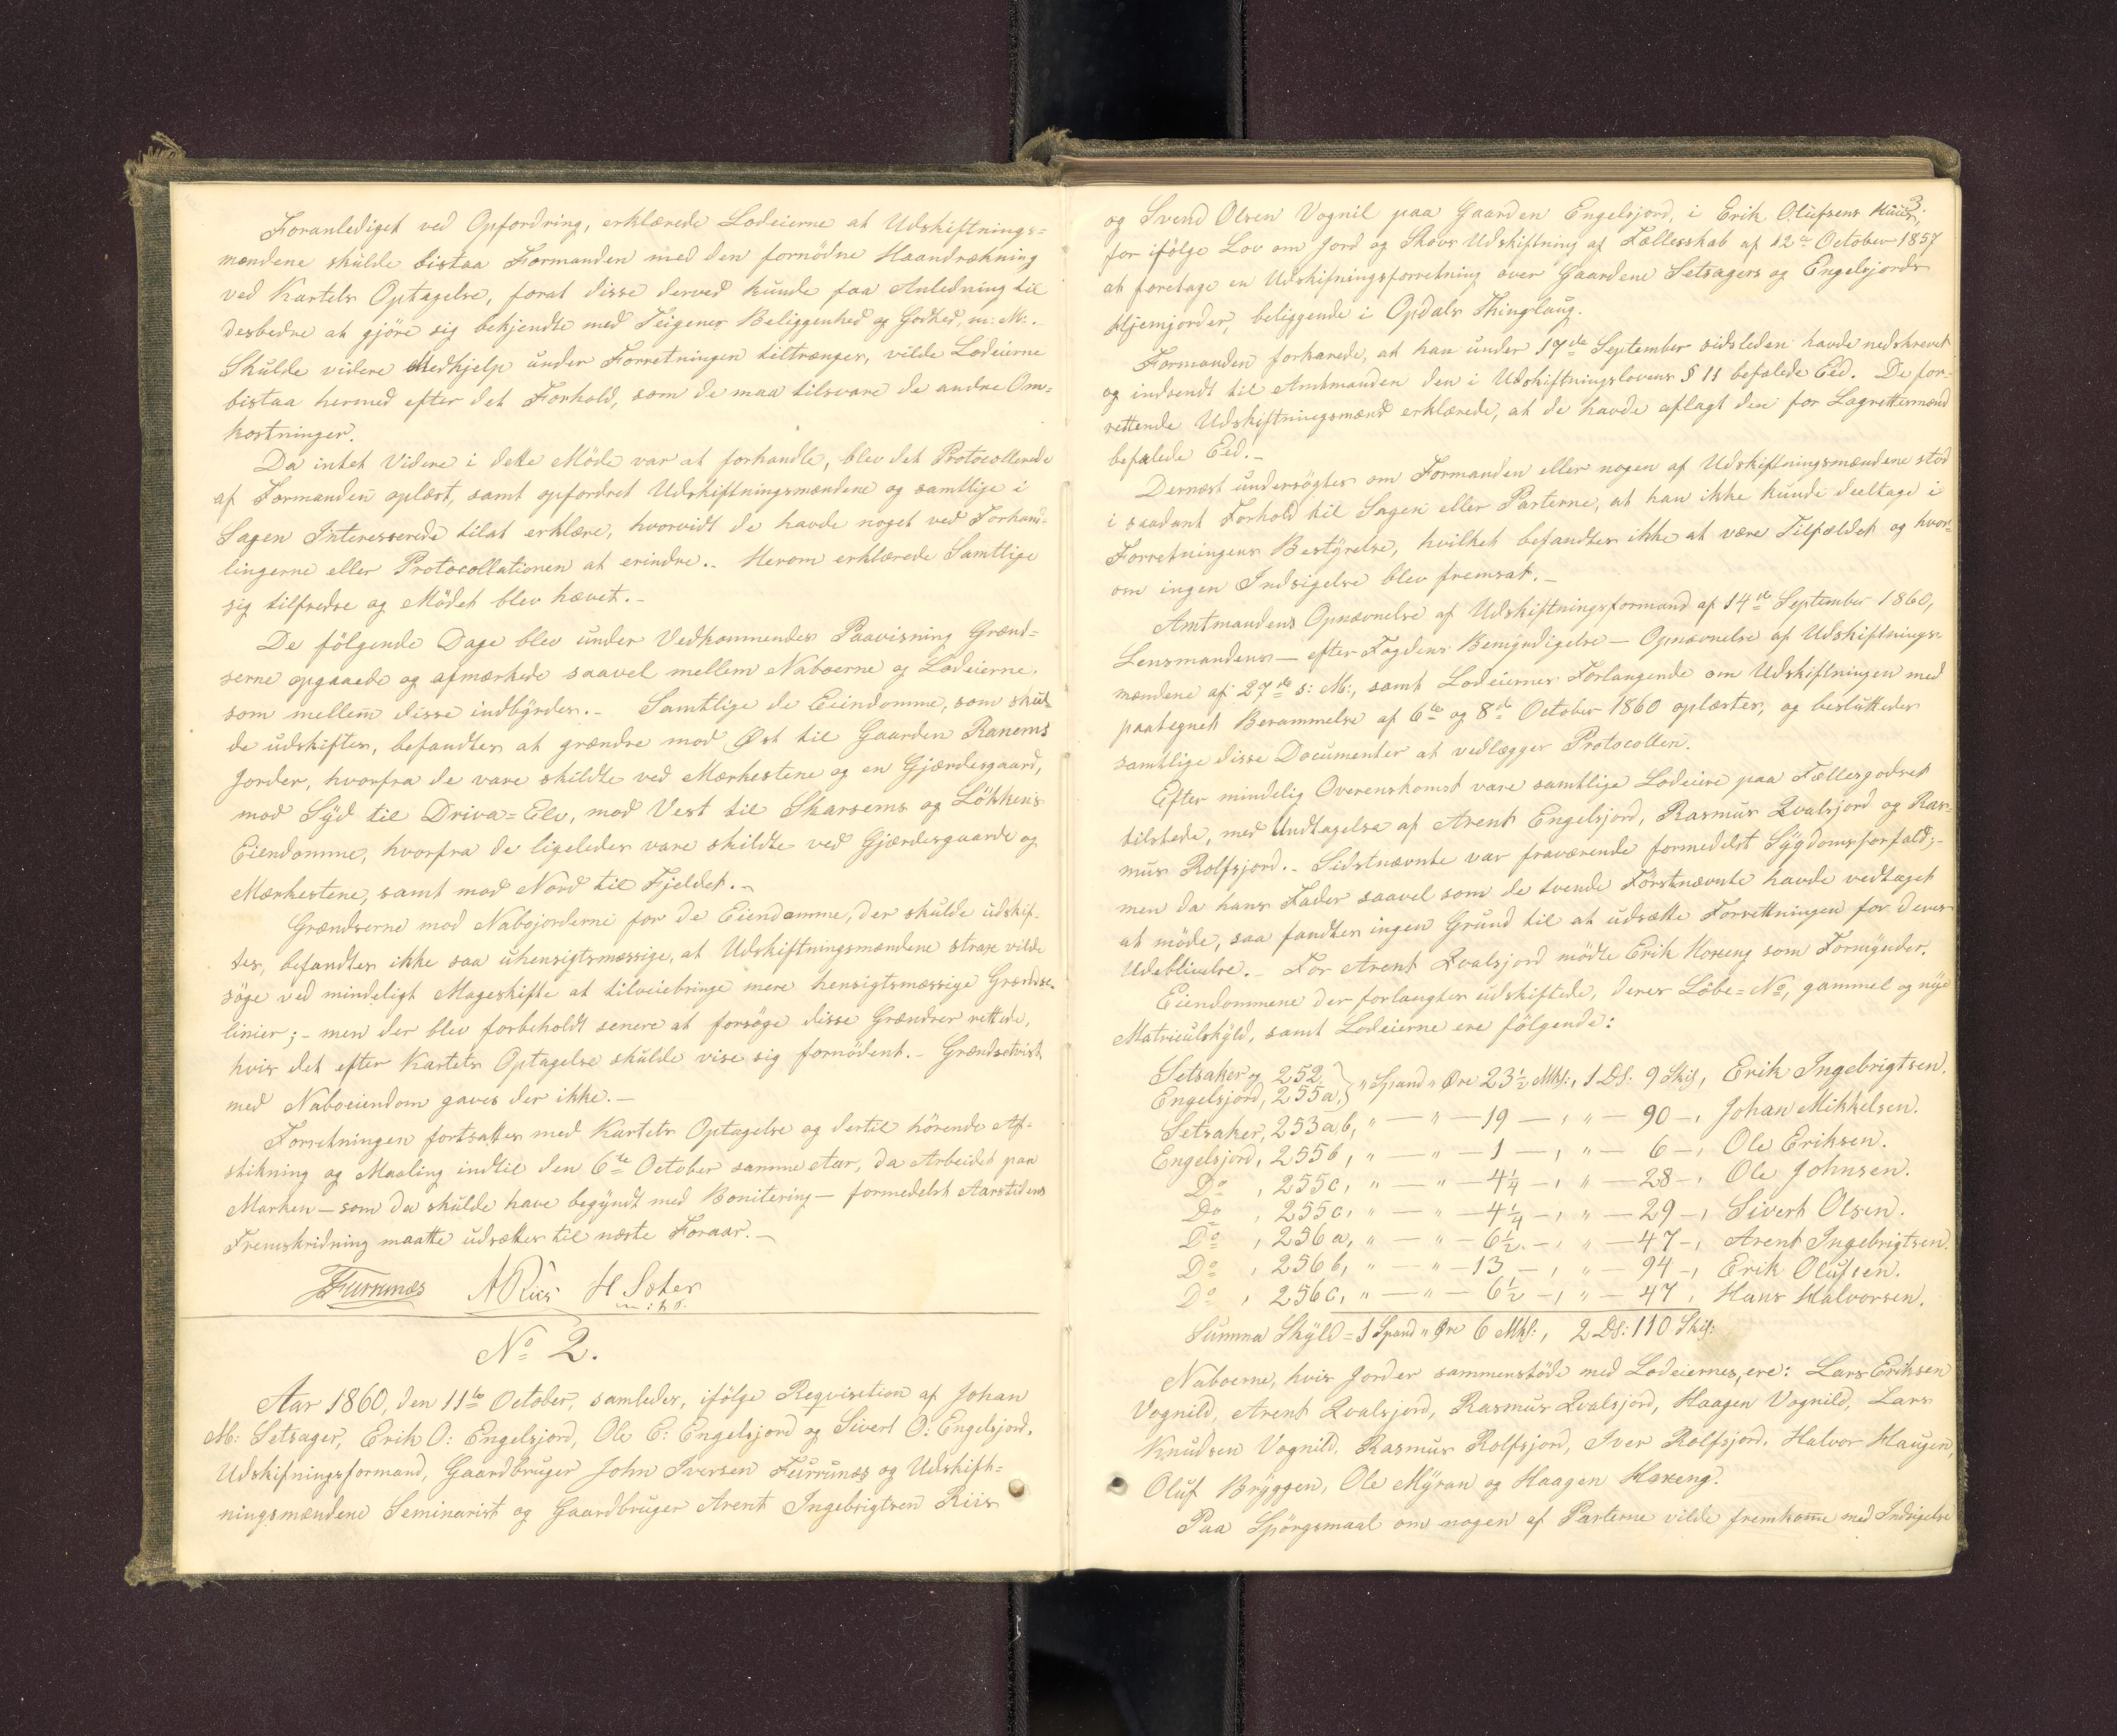 Foranlediget ved Opfordring, erklærede Lodeierne at Udskiftnings=
mændene skulde bistaa Formanden med den fornödne Haandrækning
ved Kartets Optagelse, forat disse derved kunde faa Anledning til
desbedre at gjöre sig bekjendte med Teigenes Beliggenhed og Godhed, m: M:.
Skulde videre Medhjelp under Forretningen tiltrænges, vilde Lodeierne
bistaa hermed efter det Forhold, som de maa tilsvare de andre Om=
kostninger.
Da intet Videre i dette Möde var at forhandle, blev det Protocollerede
af Formanden oplæst, samt opfordret Udskiftningsmændene og samtlige i
Sagen Interesserede tilat erklære, hvorvidt de havde noget ved Forhand=
lingerne eller Protocollationen at erindre.- Herom erklærede Samtlige
sig tilfredse og Mödet blev hævet.-
De fölgende Dage blev under Vedkommendes Paavisning Grænd=
serne opgaaede og afmærkede saavel mellem Naboerne og Lodeierne
som mellem disse indbÿrdes.- Samtlige de Eiendomme, som skul=
de udskiftes, befandtes at grændse mod Øst til Gaarden Ranems
Jorder, hvorfra de vare skildte ved Mærkestene og en Gjærdesgaard,
mod Sÿd til Driva=Elv, mod Vest til Skarsems og Lökkens
Eiendomme, hvorfra de ligeledes vare skildte ved Gjærdesgaarde og
Mærkestene, samt mod Nord til Fjeldet.-
Grændserne mod Nabojorderne for de Eiendomme, der skulde udskif-
tes, befandtes ikke saa uhensigtsmæssige, at Udskiftningsmændene strax vilde
söge ved mindeligt Mageskifte at tilveiebringe mere hensigtsmæssige Grændse-
linier;- men der blev forbeholdt senere at forsöge disse Grændser rettede,
hvis det efter Kartets Optagelse skulde vise sig fornödent.- Grændsetvist
med Naboeiendom gaves der ikke.-
Forretningen fortsattes med Kartets Optagelse og dertil hörende Af-
stikning og Maaling indtil den 6te October samme Aar, da Arbeidet paa
Marken - som da skulde have begÿndt med Bonitering - formedelst Aarstidens
Fremskridning maatte udsættes til næste Foraar.-
JFurrunæs A Riis H Ister
m: i: p:
No 2.
Aar 1860, den 11te October, samledes, ifölge Reqvisition af Johan
M: Setsager, Erik O: Engelsjord, Ole E: Engelsjord og Sivert O: Engelsjord,
Udskifningsformand, Gaardbruger John Iversen Furrunæs og Udskift=
ningsmændene Seminarist og Gaardbruger Arent Ingebrigtsen Riis
3.
og Svend Olsen Vognil paa Gaarden Engelsjord, i Erik Olufsens Huus,
for ifölge Lov om Jord og Skovs Udskiftning af Fællesskab af 12te October 1857
at foretage en Udskifningsforretning over Gaardene Setsagers og Engelsjords
Hjemjorder, beliggende i Opdals Thinglaug.
Formanden forkarede, at han under 17de September sidsleden havde nedskrevet
og indsendt til Amtmanden den i Udskiftningslovens § 11 befalede Eed. De for-
rettende Udskiftningsmænd erklærede, at de havde aflagt den for Lagrettesmænd
befalede Eed.-
Dernæst undersögtes om Formanden eller nogen af Udskiftningsmændene stod
i saadant Forhold til Sagen eller Parterne, at han ikke kunde deeltage i
Forretningens Bestÿrelse, hvilket befandtes ikke at være Tilfældet og hvor=
om ingen Indsigelse blev fremsat.-
Amtmandens Opnævnelse af Udskiftningsformand af 14de September 1860,
Lensmandens - efter Fogdens Bemÿndigelse - Opnævnelse af Udskiftnings=
mændene af 27de s: M:, samt Lodeiernes Forlangende om Udskiftningen med
paategnet Berammelse af 6te og 8de October 1860 oplæstes, og besluttedes
samtlige disse Documenter at vedlægges Protocollen.
Efter mindelig Overenskomst vare samtlige Lodeiere paa Fællesgodset
tilstede, med Undtagelse af Arent Engelsjord, Rasmus Qvalsjord og Ras=
mus Rolfsjord.- Sidstnævnte var fraværende formedelst Sÿgdomsforfald;-
men da hans Fader saavel som de tvende Förstnævnte havde vedtaget
at möde, saa fandtes ingen Grund til at udsætte Forrettningen for deres
Udeblivelse.- For Arent Qvalsjord mödte Erik Hoxeng som Formÿnder.
Eiendommene der forlangtes udskiftede, deres Löbe=No, gammel og nÿe
Matriculskÿld, samt Lodeierne ere fölgende:
Setsaker og 252
Engelsjord, 255a, } " Spand " Øre 23½ Mkl:, 1 Dl: 9 Skil, Erik Ingebrigtsen.
Setsaker, 253ab, " — " — 19 —, " — 90 —, Johan Mikkelsen.
Engelsjord, 255b, " — " — 1 —, " — 6 —, Ole Eriksen.
Do, 255c, " — " — 4¼ —, " — 28 —, Ole Johnsen.
Do, 255c, " — " — 4¼ —, " — 29 —, Sivert Olsen.
Do, 256a, " — " — 6½ —, " — 47 —, Arent Ingebrigtsen.
Do, 256b, " — " — 13 —, " — 94 —, Erik Olufsen.
Do, 256c, " — " — 6½ —, " — 47, Hans Halvorsen.
Summa Skÿld = 1 Spand " Øre 6 Mkl:, 2 Dl: 110 Skil:
Naboerne, hvis Jorder sammenstöde med Lodeiernes, ere: Lars Eriksen
Vognild, Arent Qvalsjord, Rasmus Qvalsjord, Haagen Vognild, Lars
Knudsen Vognild, Rasmus Rolfsjord, Iver Rolfsjord, Halvor Haugen,
Oluf Brÿggen, Ole Mÿran og Haagen Hoxeng.
Paa Spörgsmaal om nogen af Parterne vilde fremkomme med Indsigelse